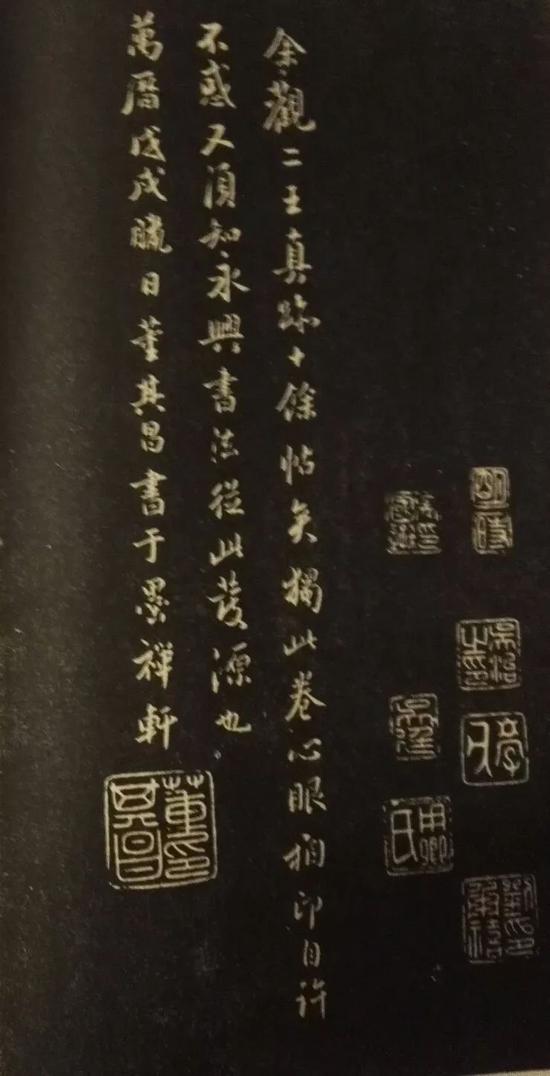 余觀二王真跡十餘帖矣獨此卷心眼相印自許
不惑又須知永興書法從此發源也
萬曆戊戌臘日董其昌書于墨禪軒
董其昌印